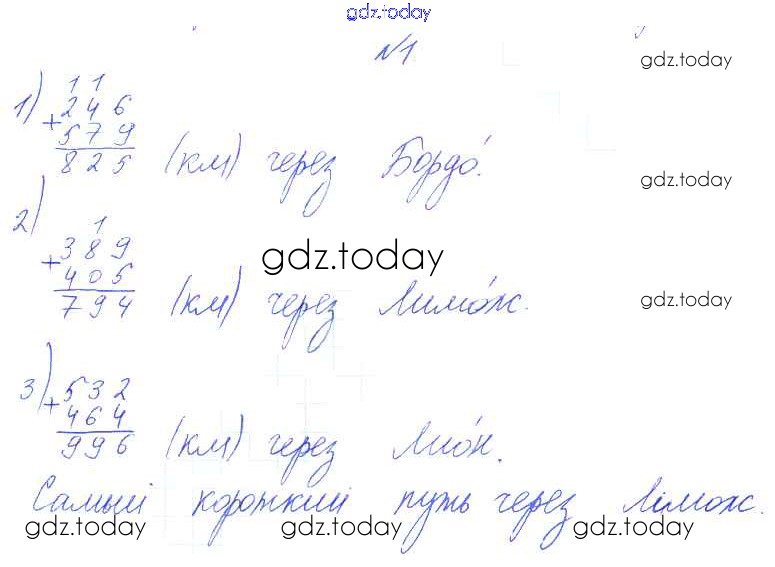 gdz.today
№1
gdz.today
1) 1 1
+ 2 4 6
5 7 9
8 2 5 (км) через Бордо́.
gdz.today
2) 1
+ 3 8 9
gdz.today
4 0 5
7 9 4 (км) через Лимо́ж.
gdz.today
3) + 5 3 2
4 6 4
9 9 6 (км) через Лио́н.
Самый короткий путь через Лимож.
gdz.today gdz.today gdz.today